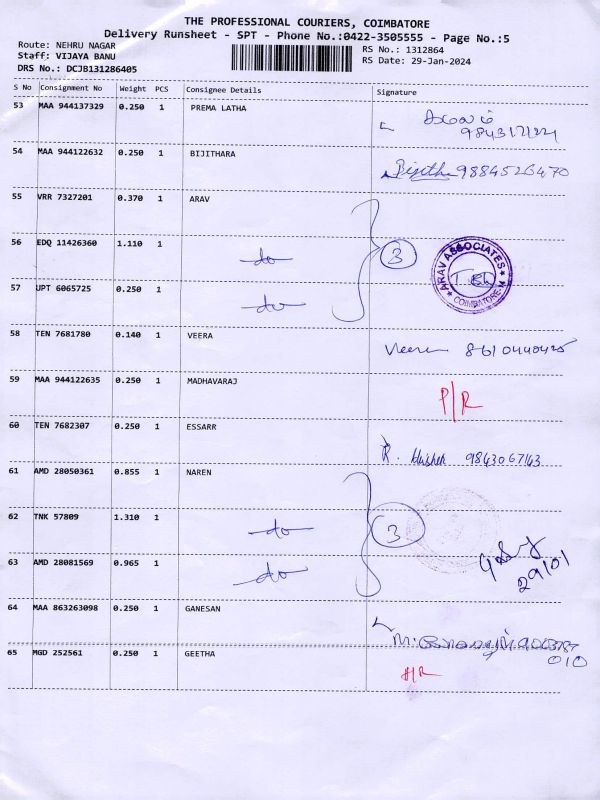 THE PROFESSIONAL COURIERS, COIMBATORE
Delivery Runsheet - SPT - Phone No.:0422-3505555 - Page No.:5
Route: NEHRU NAGAR
Staff: VIJAYA BANU
DRS No.: DCJB131286405
RS No.: 1312864
RS Date: 29-Jan-2024
S No Consignment No Weight PCS Consignee Details Signature
53 MAA 944137329 0.250 1 PREMA LATHA
54 MAA 944122632 0.250 1 BIJITHARA 9884526470
55 VRR 7327201 0.370 1 ARAV
56 EDQ 11426360 1.110 1 do 3
ARAV ASSOCIATES
COIMBATORE
57 UPT 6065725 0.250 1 do
58 TEN 7681780 0.140 1 VEERA Veera 8610440425
59 MAA 944122635 0.250 1 MADHAVARAJ P/R
60 TEN 7682307 0.250 1 ESSARR 9843067143
61 AMD 28050361 0.855 1 NAREN
62 TNK 57809 1.310 1 do 3
63 AMD 28081569 0.965 1 do 29/01
64 MAA 863263098 0.250 1 GANESAN
010
65 MGD 252561 0.250 1 GEETHA